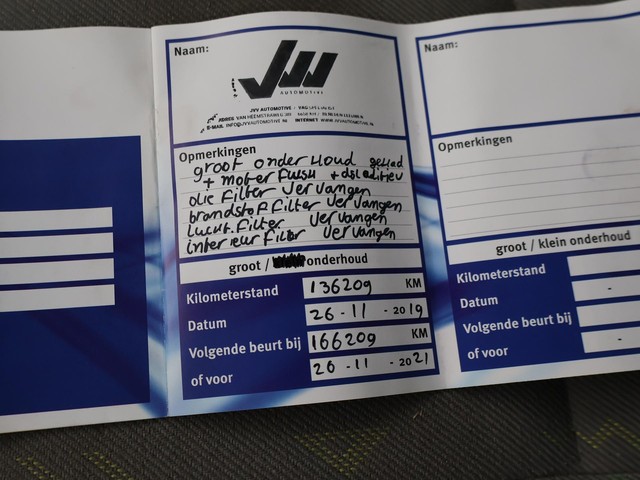 Naam:
JVV
AUTOMOTIVE
JVV AUTOMOTIVE
ADRES VAN HEEMSTRAWEG
E-MAIL INFO@JVVAUTOMOTIVE.NL INTERNET WWW.JVVAUTOMOTIVE.NL
Opmerkingen
groot onderhoud gehad
+ moter flush +
olie filter vervangen
brandstof filter vervangen
lucht.filter vervangen
interieur filter vervangen
groot / onderhoud
Kilometerstand 136209 KM
Datum 26-11-2019
Volgende beurt bij 166209 KM
of voor 26-11-2021
Naam:
Opmerkingen
groot / klein onderhoud
Kilometerstand
Datum -
Volgende beurt bij
of voor -